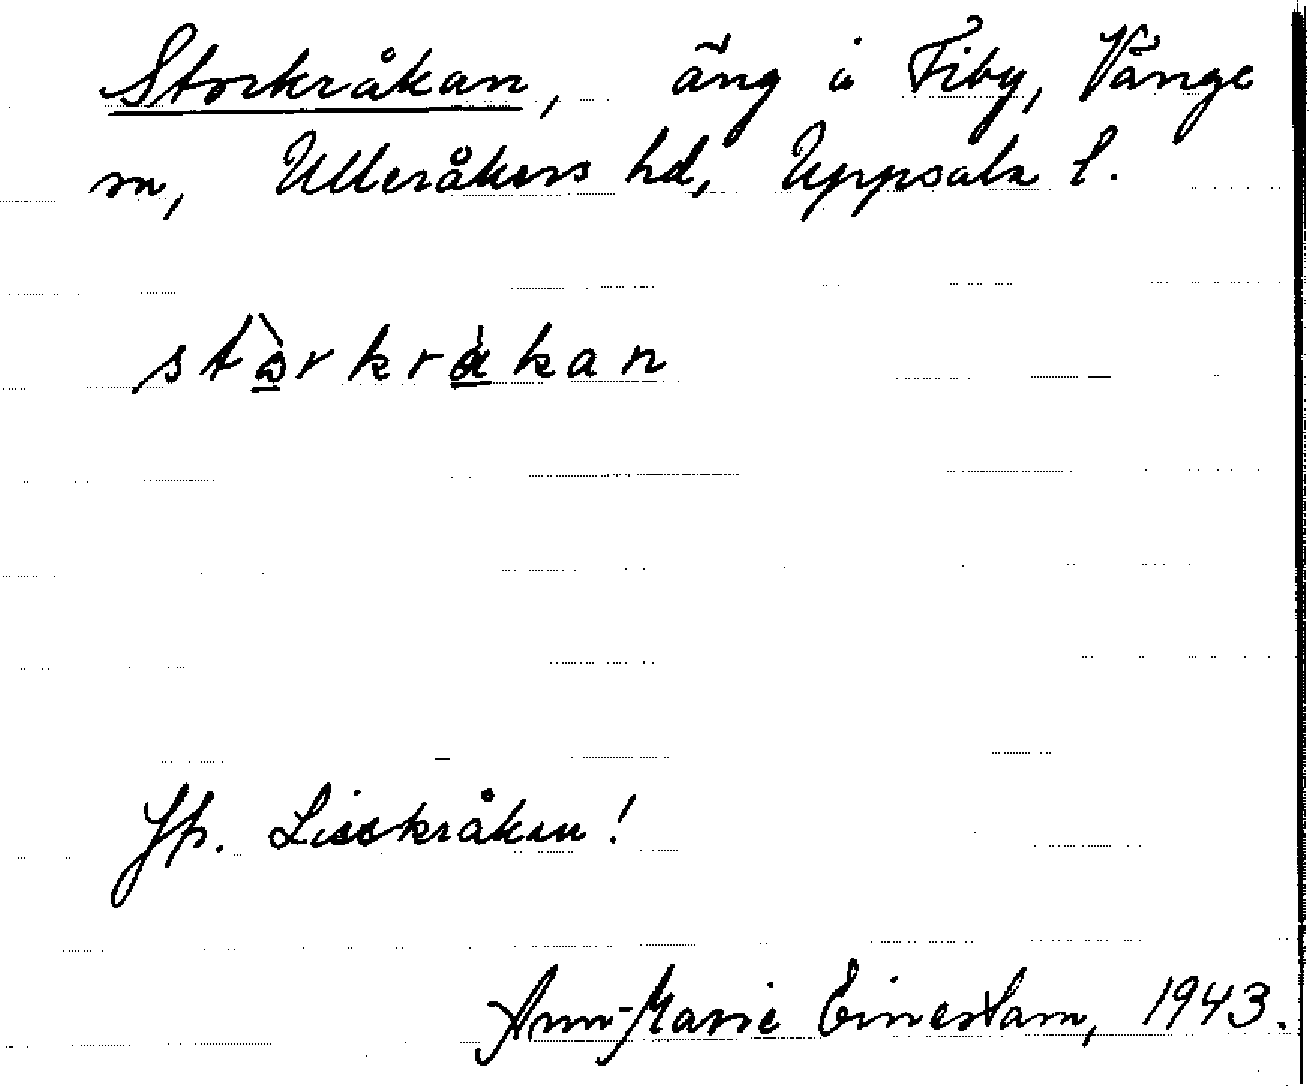 Storkråkan, äng å Fiby, Vänge
sn, Ulleråkers hd, Uppsala l.
stòrkràkan
Jfr. Lisskråkan!
Ann-Marie Einerstam, 1943.